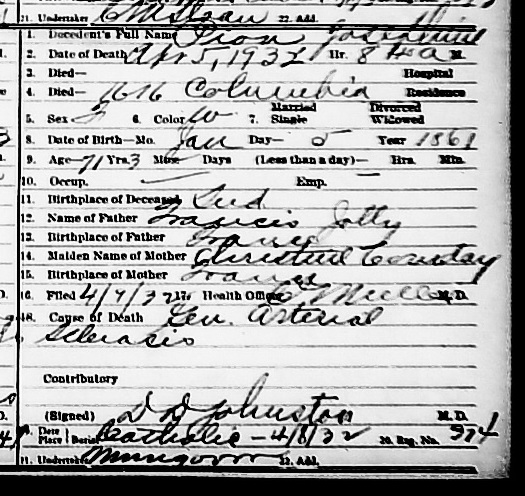 21. Undertaker 22. Add.
1. Decedent's Full Name Pion Josephine
2. Date of Death Apr 5, 1932 Hr. 8 40 a M.
3. Died— Hospital
4. Died— 1616 Columbia Residence
5. Sex F 6. Color W 7. Married Single Divorced Widowed
8. Date of Birth—Mo. Jan Day— 5 Year 1861
9. Age— 71 Yrs. 3 Mos. Days (Less than a day)— Hrs. Min.
10. Occup. Emp.
11. Birthplace of Deceased Ind
12. Name of Father Francis Jolly
13. Birthplace of Father France
14. Maiden Name of Mother Christine
15. Birthplace of Mother France
16. Filed 4/7/32 17. Health Officer M.D.
18. Cause of Death Gen. Arterial
Sclerosis
Contributory
(Signed) D D Johnston M.D.
19. Date Place Burial Catholic - 4/8/32 20. Reg. No. 374
21. Undertaker Mungovan 22. Add.